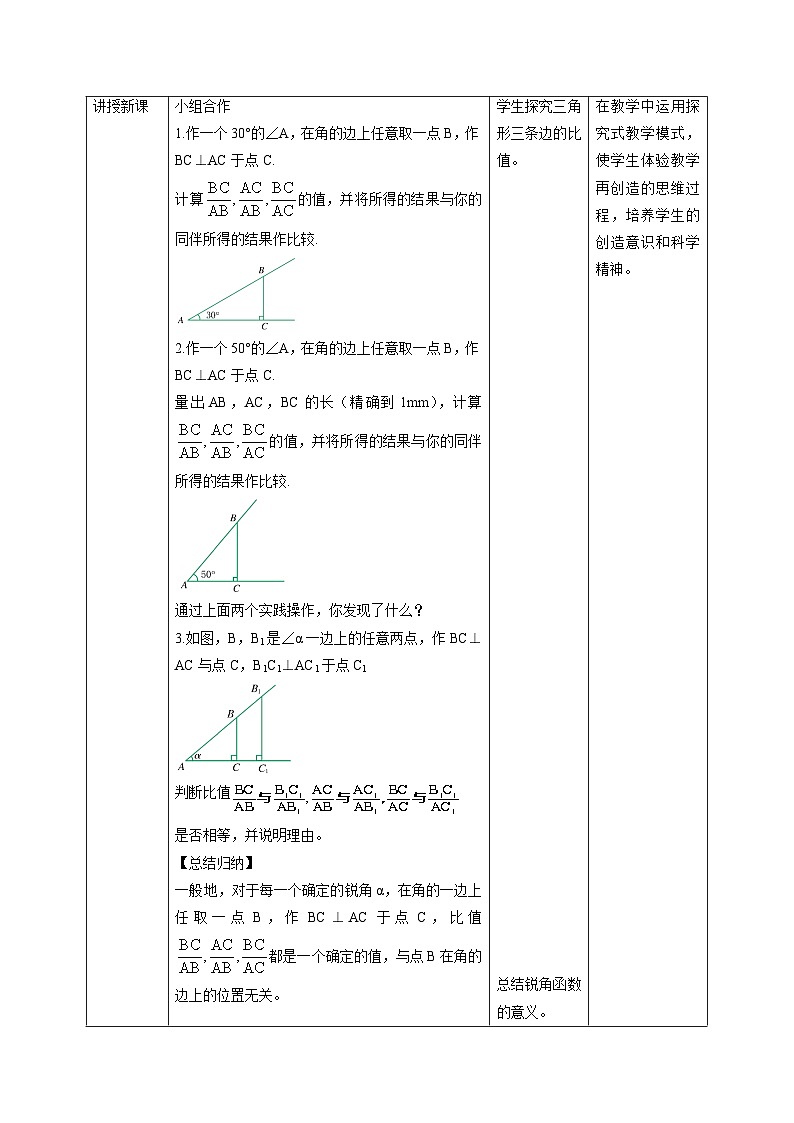 讲授新课
小组合作
1.作一个30°的∠A，在角的边上任意取一点B，作
BC⊥AC于点C.
计算BC/AB,AC/AB,BC/AC的值，并将所得的结果与你的
同伴所得的结果作比较.
B
A
30°
C
2.作一个50°的∠A，在角的边上任意取一点B，作
BC⊥AC于点C.
量出AB，AC，BC的长（精确到1mm），计算
BC/AB,AC/AB,BC/AC的值，并将所得的结果与你的同伴
所得的结果作比较.
B
A
50°
C
通过上面两个实践操作，你发现了什么？
3.如图，B，B₁是∠α一边上的任意两点，作BC⊥
AC与点C，B₁C₁⊥AC₁于点C₁
B₁
B
A
α
C
C₁
判断比值BC/AB与B₁C₁/AB₁,AC/AB与AC₁/AB₁,BC/AC与B₁C₁/AC₁
是否相等，并说明理由。
【总结归纳】
一般地，对于每一个确定的锐角α，在角的一边上
任取一点B，作BC⊥AC于点C，比值
BC/AB,AC/AB,BC/AC都是一个确定的值，与点B在角的
边上的位置无关。
学生探究三角
形三条边的比
值。
总结锐角函数
的意义。
在教学中运用探
究式教学模式，
使学生体验教学
再创造的思维过
程，培养学生的
创造意识和科学
精神。